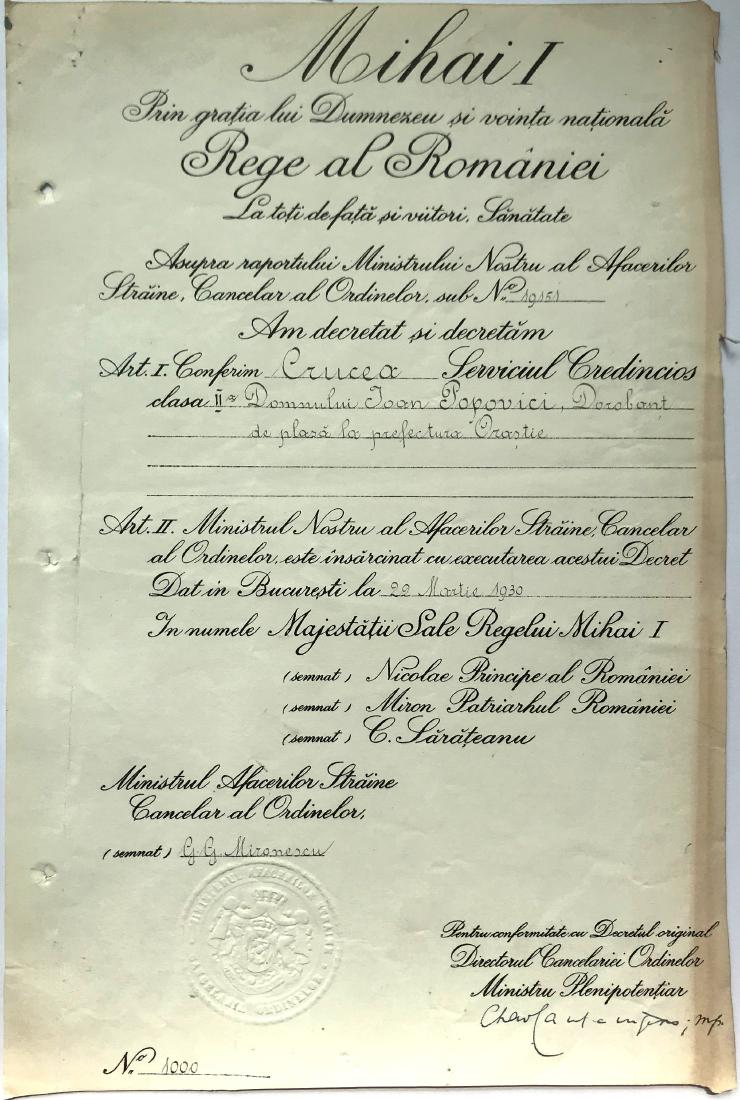 Mihai I
Prin grația lui Dumnezeu și voința națională
Rege al României
La toți de față și viitori, Sănătate
Asupra raportului Ministrului Nostru al Afacerilor
Străine, Cancelar al Ordinelor, sub No. 19151
Am decretat și decretăm
Art. I. Conferim Crucea Serviciul Credincios
clasa II-a Domnului Ioan Popovici, Dorobanț
de plasă la prefectura Oraștie
Art. II. Ministrul Nostru al Afacerilor Străine, Cancelar
al Ordinelor, este însărcinat cu executarea acestui Decret
Dat in București la 22 Martie 1930
In numele Majestății Sale Regelui Mihai I
(semnat) Nicolae Principe al României
(semnat) Miron Patriarhul României
(semnat) C. Sărățeanu
Ministrul Afacerilor Străine
Cancelar al Ordinelor,
(semnat) G. G. Mironescu
Pentru conformitate cu Decretul original
Directorul Cancelariei Ordinelor
Ministru Plenipotențiar
No. 1000